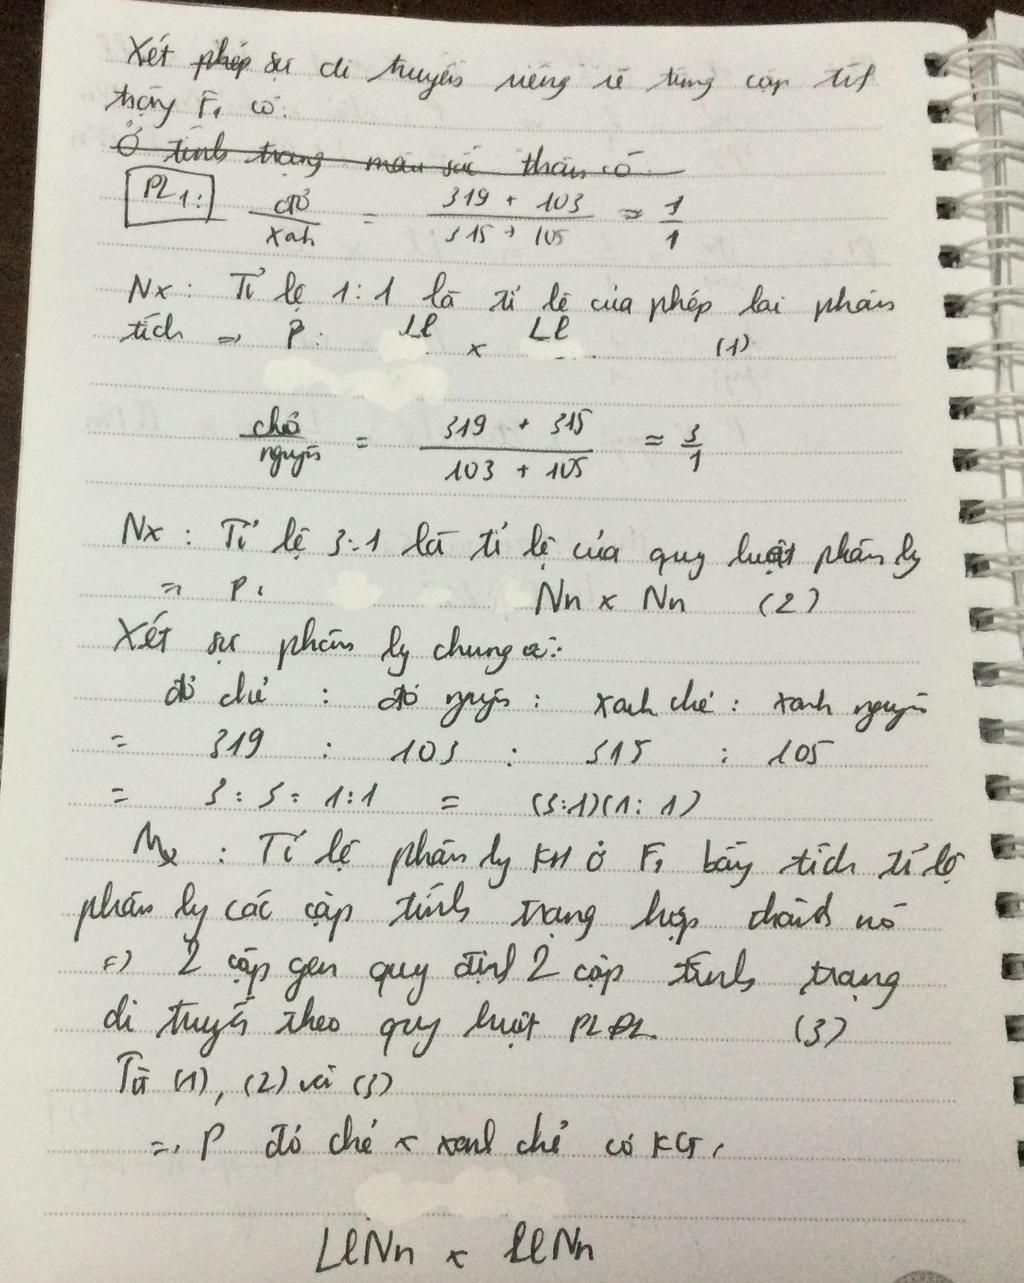 Xét phép sự di truyền riêng rẽ từng cặp tit
trạng F₁ có:
Ở tính trạng màu sắc thân có
PL1: đỏ / xanh = 319 + 103 / 315 + 105 ≈ 1/1
Nx: Tỉ lệ 1:1 là tỉ lệ của phép lai phân
tích => P: Ll x Ll (1)
chẻ / nguyên = 319 + 315 / 103 + 105 ≈ 3/1
Nx: Tỉ lệ 3:1 là tỉ lệ của quy luật phân ly
=> P: Nn x Nn (2)
Xét sự phân ly chung:
đỏ chẻ : đỏ nguyên : xanh chẻ : xanh nguyên
= 319 : 103 : 315 : 105
= 3:3:1:1 = (3:1)(1:1)
Nx: Tỉ lệ phân ly KH ở F₁ bằng tích tỉ lệ
phân ly các cặp tính trạng hợp thành nó
=> 2 cặp gen quy định 2 cặp tính trạng
di truyền theo quy luật PLĐL (3)
Từ (1), (2) và (3)
=> P đỏ chẻ x xanh chẻ có KG:
LlNn x llNn